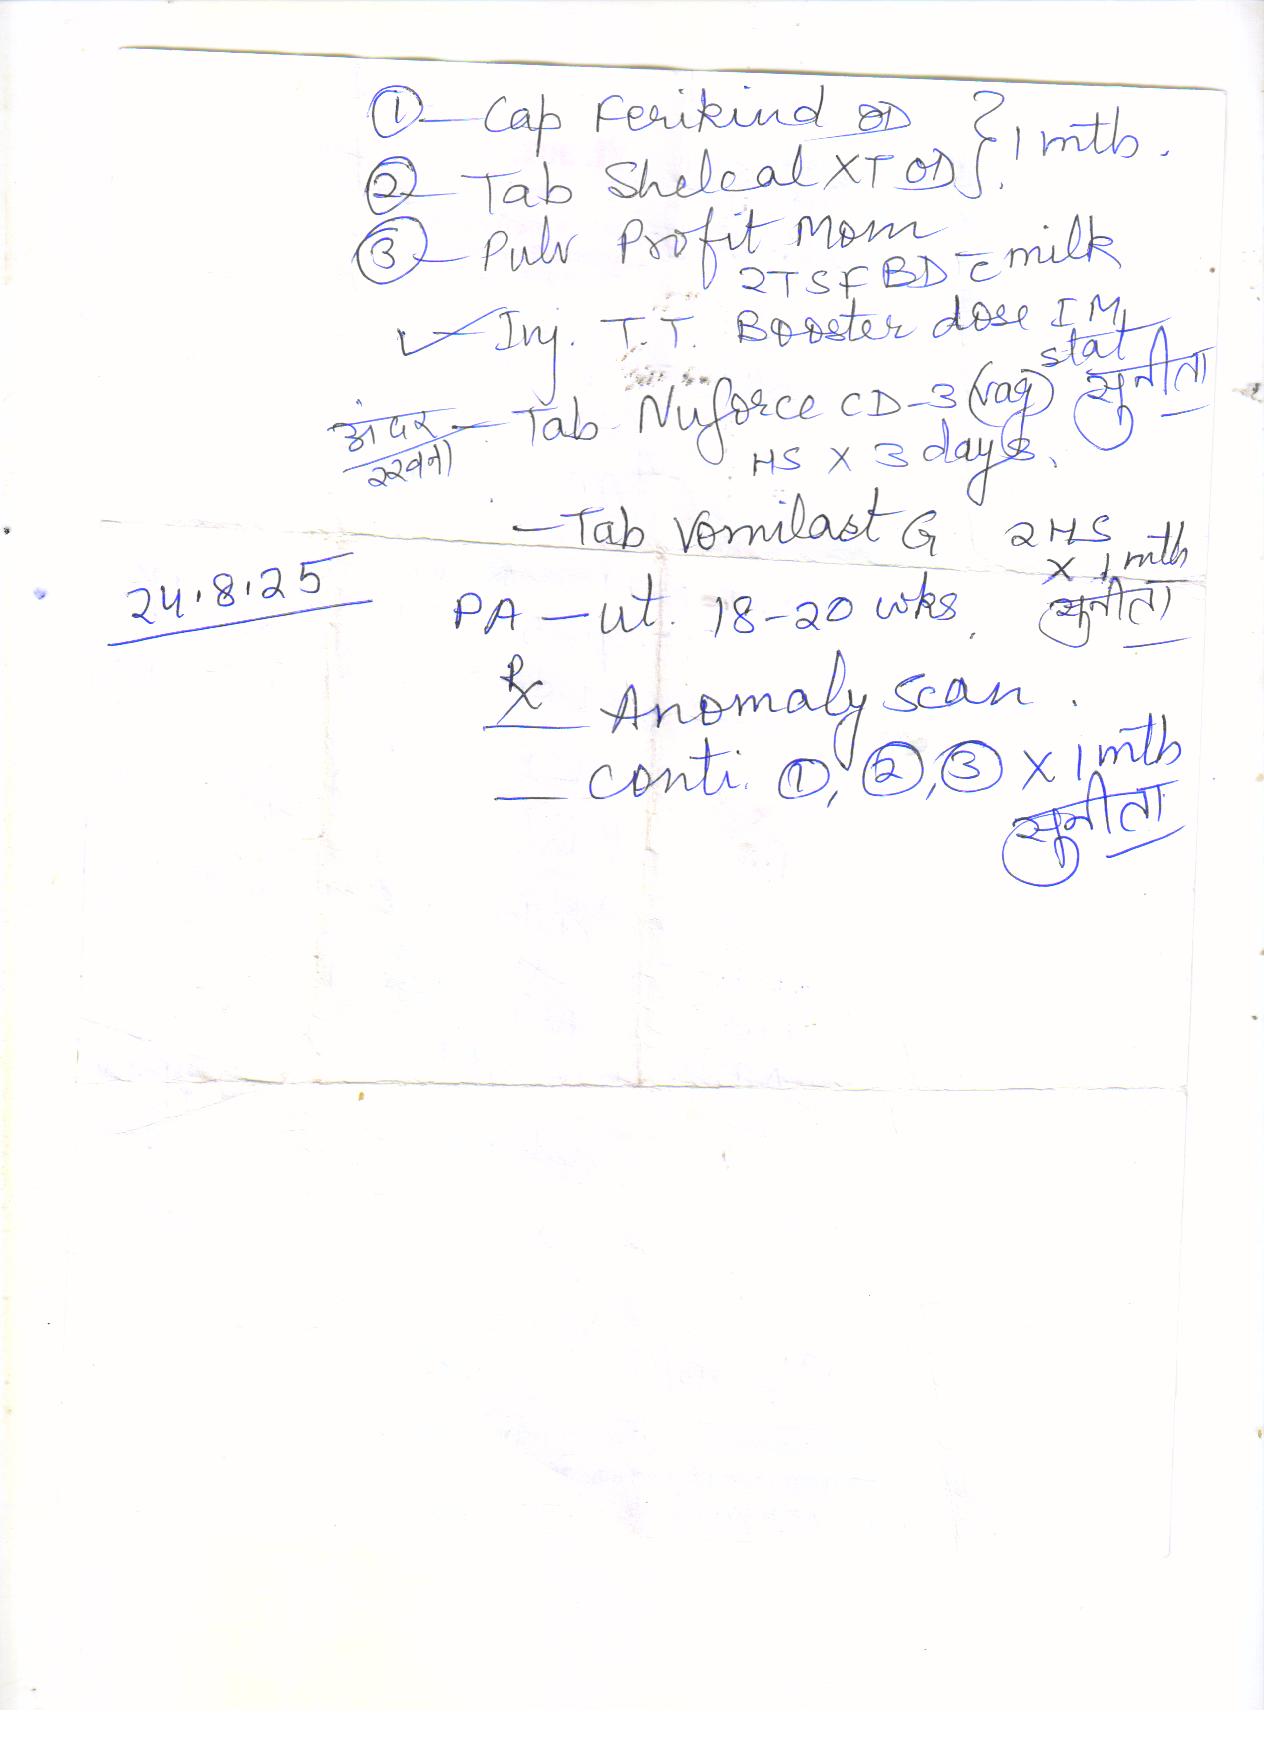 ① — Cap Ferikind OD
② — Tab Shelcal XT OD } 1 mtb.
③ — Pulv Profit Mom
2TSF BD c̄ milk
✓ Inj. T.T. Booster dose IM,
stat
सुनीता
अंदर रखना — Tab Nuforce CD-3 (vag)
HS X 3 days.
— Tab Vomilast G 2 HS
X 1 mtb
सुनीता
24.8.25
PA — ut. 18-20 wks.
Rx
Anomaly scan.
— conti. ①, ②, ③ X 1 mtb
सुनीता